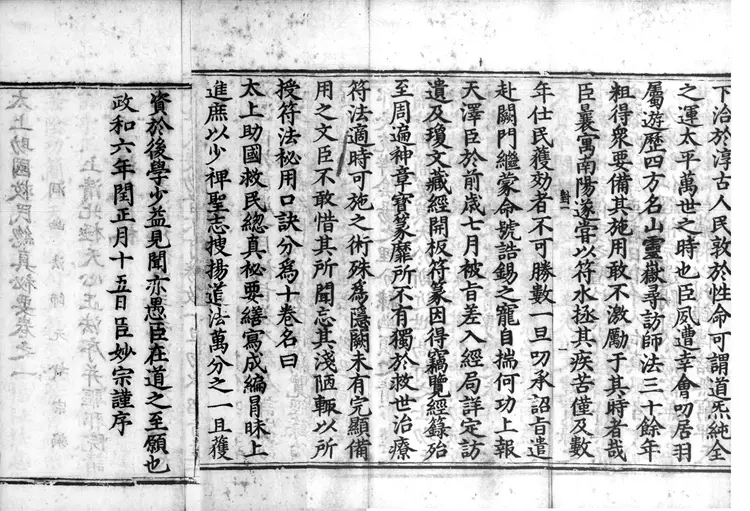 下治於淳古人民敦於性命可謂道炁純全
之運太平萬世之時也臣夙遭幸會叨居羽
屬遊歷四方名山靈嶽尋訪師法三十餘年
粗得衆要備其施用敢不激勵于其時者哉
臣曩寓南陽遂嘗以符水拯其疾苦僅及數
年仕民獲効者不可勝數一旦叨承詔旨遣
赴闕門繼蒙命號誥錫之寵自揣何功上報
天澤臣於前歲七月被旨差入經局詳定訪
遺及瓊文藏經開板符篆因得竊覽經籙殆
至周遍神章寶篆靡所不有獨於救世治療
符法適時可施之術殊為隱闕未有完顯備
用之文臣不敢惜其所聞忘其淺陋輒以所
授符法秘用口訣分為十卷名曰
太上助國救民總真秘要繕寫成編冒昧上
進庶以少裨聖志搜揚道法萬分之一且獲
資於後學少益見聞亦愚臣在道之至願也
政和六年閏正月十五日臣妙宗謹序
太上助國救民總真秘要卷之一